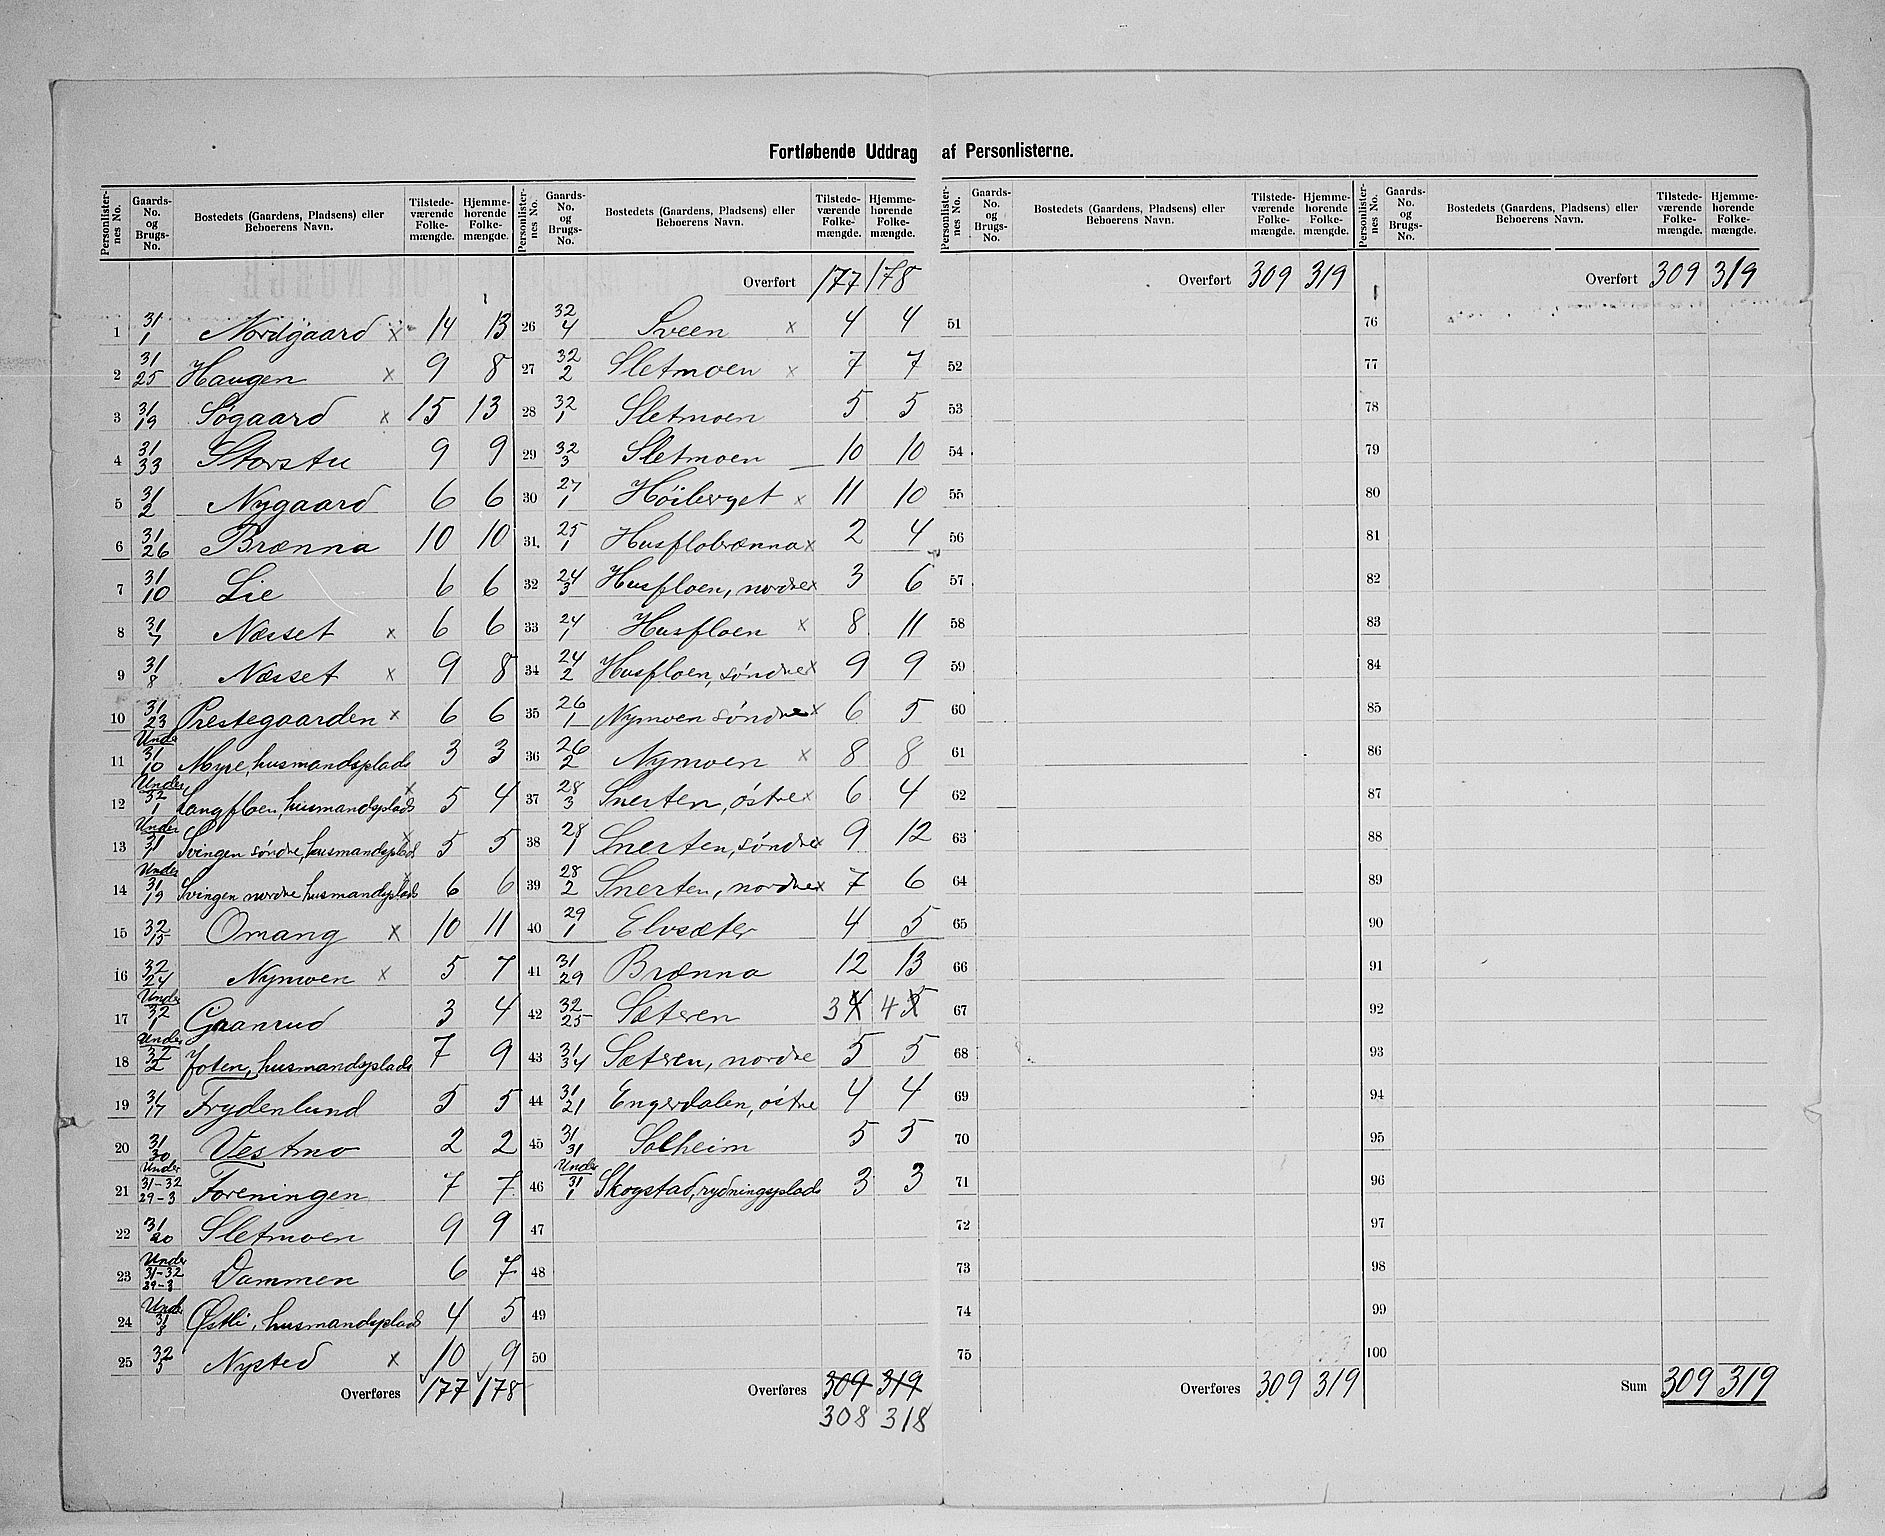 Fortløbende Uddrag af Personlisterne.
Personlister-nes No. | Gaards-No. og Brugs-No. | Bostedets (Gaardens, Pladsens) eller Beboerens Navn. | Tilstede-værende Folke-mængde. | Hjemme-hørende Folke-mængde.
1 31/1 Nordgaard x 14 13
2 31/25 Haugen x 9 8
3 31/19 Søgaard x 15 13
4 31/33 Storstu 9 9
5 31/2 Nygaard 6 6
6 31/26 Brænna 10 10
7 31/10 Lie 6 6
8 31/7 Næsset x 6 6
9 31/8 Næsset x 9 8
10 31/23 Prestegaarden x 6 6
11 Under 31/10 Myre, husmandsplads 3 3
12 Under 32/1 Langfloen, husmandsplads x 5 4
13 Under 31/1 Svingen søndre, husmandsplads x 5 5
14 Under 31/13 Svingen nordre husmandsplads x 6 6
15 32/15 Omang x 10 11
16 32/24 Nymoen x 5 7
17 Under 32/1 Granrud 3 4
18 Under 32/2 Joten, husmandsplads 7 9
19 31/17 Frydenlund 5 5
20 31/30 Vestmo 2 2
21 Under 31-32 29-3 Foreningen 7 7
22 31/20 Sletmoen 9 9
23 Under 31-32 29-3 Dammen 6 7
24 Under 31/8 Østli, husmandsplads 4 5
25 32/5 Nysted x 10 9
Overføres 177 178
Personlister-nes No. | Gaards-No. og Brugs-No. | Bostedets (Gaardens, Pladsens) eller Beboerens Navn. | Tilstede-værende Folke-mængde. | Hjemme-hørende Folke-mængde.
Overført 177 178
26 32/4 Sveen x 4 4
27 32/2 Sletmoen x 7 7
28 32/1 Sletmoen 5 5
29 32/3 Sletmoen 10 10
30 27/1 Höiberget x 11 10
31 25/1 Husflobrænna x 2 4
32 24/3 Husfloen, nordre x 3 6
33 24/1 Husfloen x 8 11
34 24/2 Husfloen, søndre x 9 9
35 26/1 Nymoen søndre x 6 5
36 26/2 Nymoen x 8 8
37 28/3 Snerten, östre x 6 4
38 28/1 Snerten, søndre x 9 12
39 28/2 Snerten, nordre x 7 6
40 29/1 Elvsæter 4 5
41 31/29 Brænna 12 13
42 32/25 Sæteren 3 4 4 5
43 31/34 Sæteren, nordre 5 5
44 31/21 Engerdalen, östre 4 4
45 31/31 Solheim 5 5
46 Under 31/1 Skogstad, rydningsplads 3 3
47
48
49
50
Overføres 309 319
308 318
Personlister-nes No. | Gaards-No. og Brugs-No. | Bostedets (Gaardens, Pladsens) eller Beboerens Navn. | Tilstede-værende Folke-mængde. | Hjemme-hørende Folke-mængde.
Overført 309 319
51
52
53
54
55
56
57
58
59
60
61
62
63
64
65
66
67
68
69
70
71
72
73
74
75
Overføres 309 319
Personlister-nes No. | Gaards-No. og Brugs-No. | Bostedets (Gaardens, Pladsens) eller Beboerens Navn. | Tilstede-værende Folke-mængde. | Hjemme-hørende Folke-mængde.
Overført 309 319
76
77
78
79
80
81
82
83
84
85
86
87
88
89
90
91
92
93
94
95
96
97
98
99
100
Sum 309 319